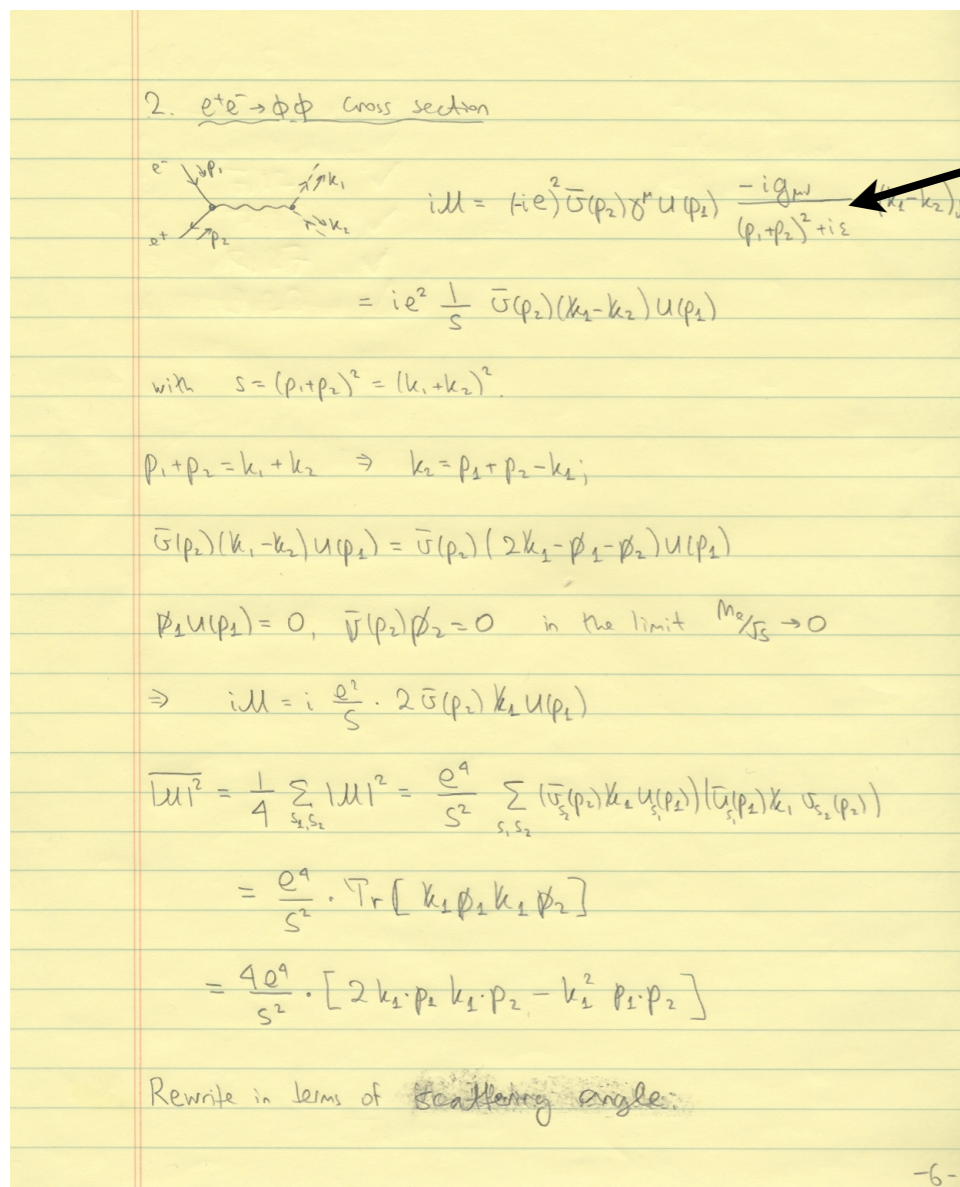 2. e⁺e⁻→ϕϕ Cross section
e⁻ p₁ k₁
e⁺ p₂ k₂
iM = (-ie)² v̄(p₂)γ^μ u(p₁) -ig_μν/((p₁+p₂)²+iε) (k₁-k₂)_ν
= ie² 1/s v̄(p₂)(k̸₁-k̸₂)u(p₁)
with s=(p₁+p₂)² = (k₁+k₂)².
p₁+p₂=k₁+k₂ ⇒ k₂=p₁+p₂-k₁;
v̄(p₂)(k̸₁-k̸₂)u(p₁) = v̄(p₂)(2k̸₁-p̸₁-p̸₂)u(p₁)
p̸₁u(p₁)=0, v̄(p₂)p̸₂=0 in the limit me/√s →0
⇒ iM = i e²/s · 2v̄(p₂)k̸₁u(p₁)
|M|²‾ = 1/4 Σ_{s₁,s₂} |M|² = e⁴/s² Σ_{s₁,s₂} (v̄_{s₂}(p₂)k̸₁u_{s₁}(p₁))(ū_{s₁}(p₁)k̸₁v_{s₂}(p₂))
= e⁴/s² · Tr[k̸₁p̸₁k̸₁p̸₂]
= 4e⁴/s² · [2k₁·p₁ k₁·p₂ - k₁² p₁·p₂]
Rewrite in terms of scattering angle:
-6-